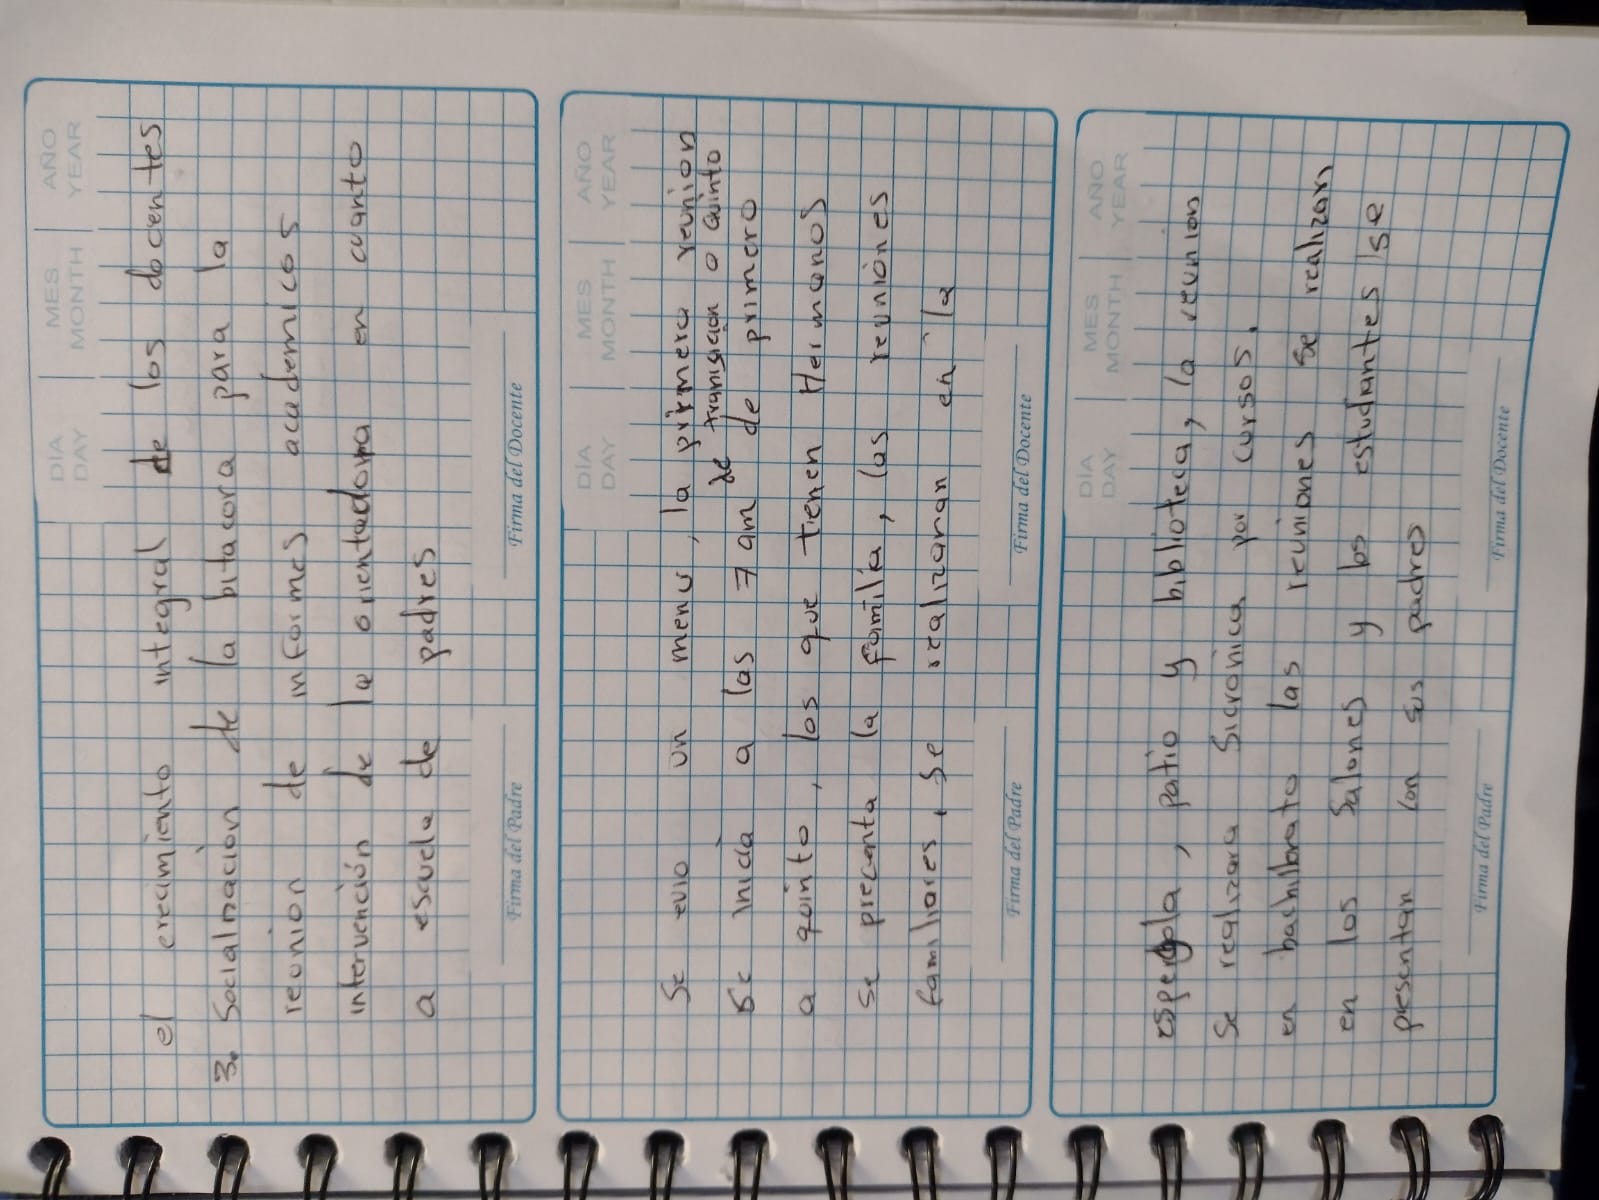 DÍA MES AÑO
DAY MONTH YEAR
el crecimiento integral de los docentes
3. Socialización de la bitacora para la
reunion de informes academicos
intervención de la orientadora en cuanto
a escuela de padres
Firma del Padre Firma del Docente
DÍA MES AÑO
DAY MONTH YEAR
Se evio un menu, la primera reunion
de transicion o quinto
Se inicia a las 7 am de primero
a quinto, los que tienen Hermanos
se precenta la familia, las reuniones
familiares, se realizaran en la
Firma del Padre Firma del Docente
DÍA MES AÑO
DAY MONTH YEAR
espergola, patio y biblioteca, la reunion
Se realizara Sicronica por cursos,
en bachillerato las reuniones se realizan
en los Salones y los estudiantes se
presentan con sus padres
Firma del Padre Firma del Docente